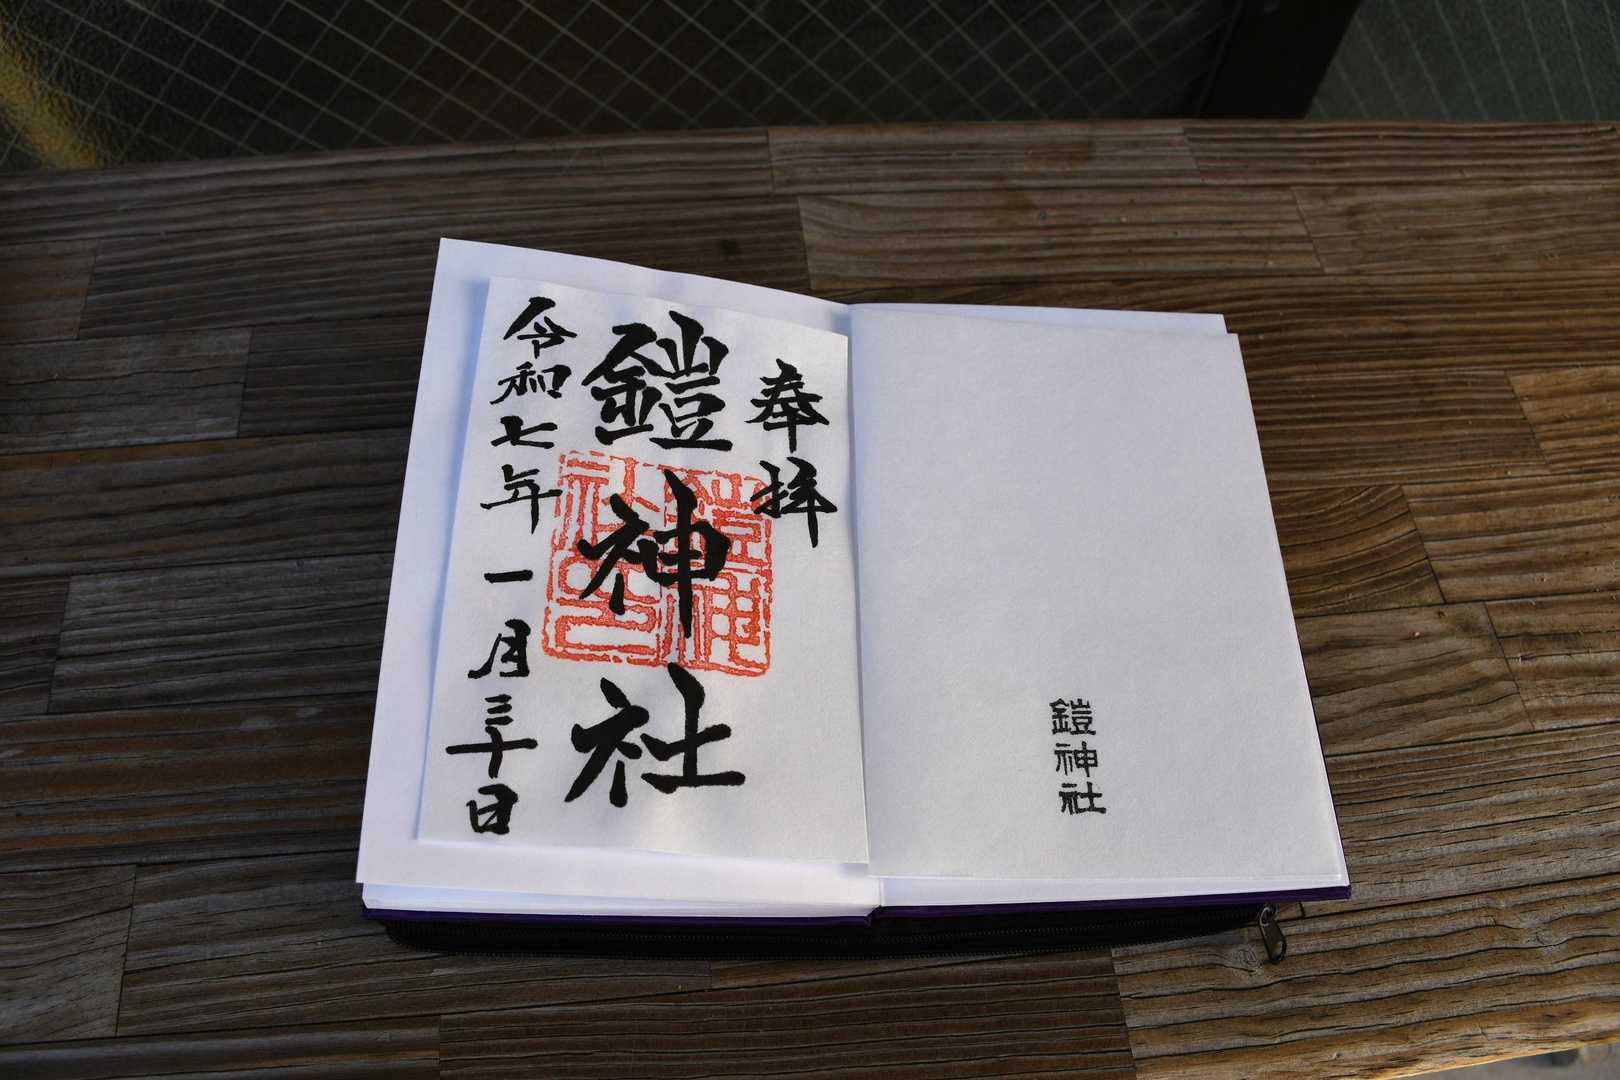 奉拝
鎧神社
令和七年一月三十日
鎧神社
鎧神社印